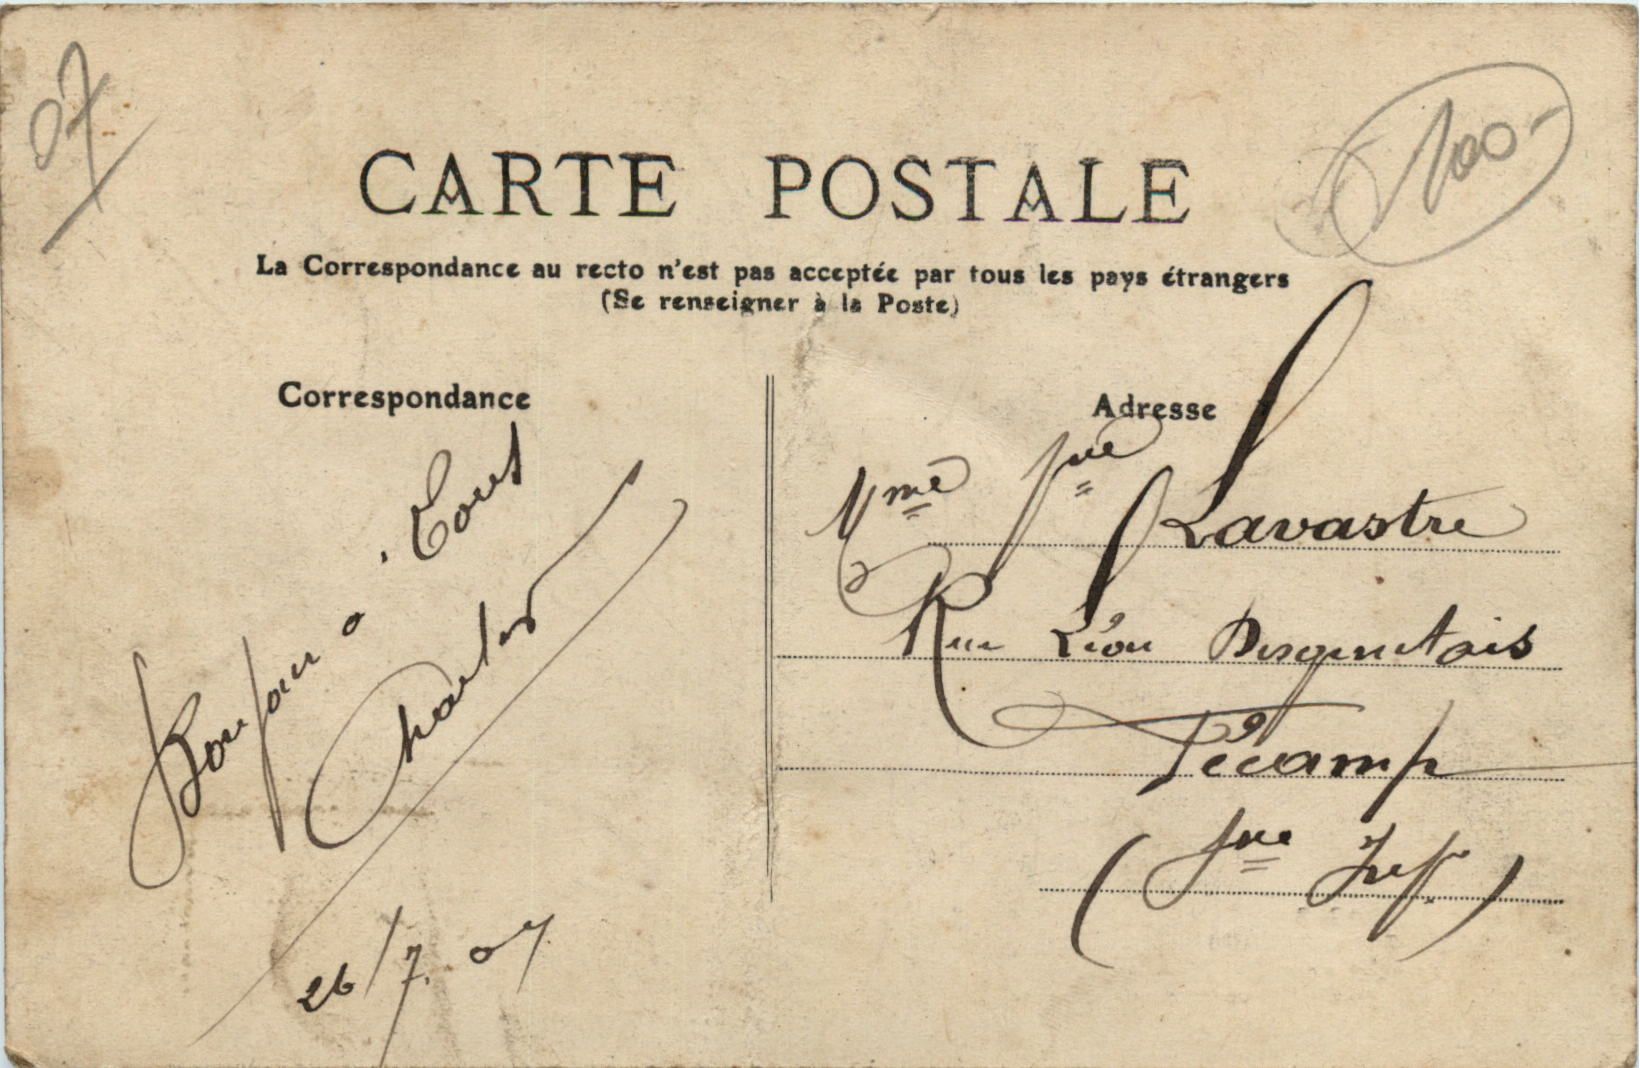 07
100-
CARTE POSTALE
La Correspondance au recto n'est pas acceptée par tous les pays étrangers
(Se renseigner à la Poste)
Correspondance
Bonjour à Tous
Charles
26/7.07
Adresse
Mme Lavastre
Rue Léon Desgenetais
Fécamp
(Sne Infre)